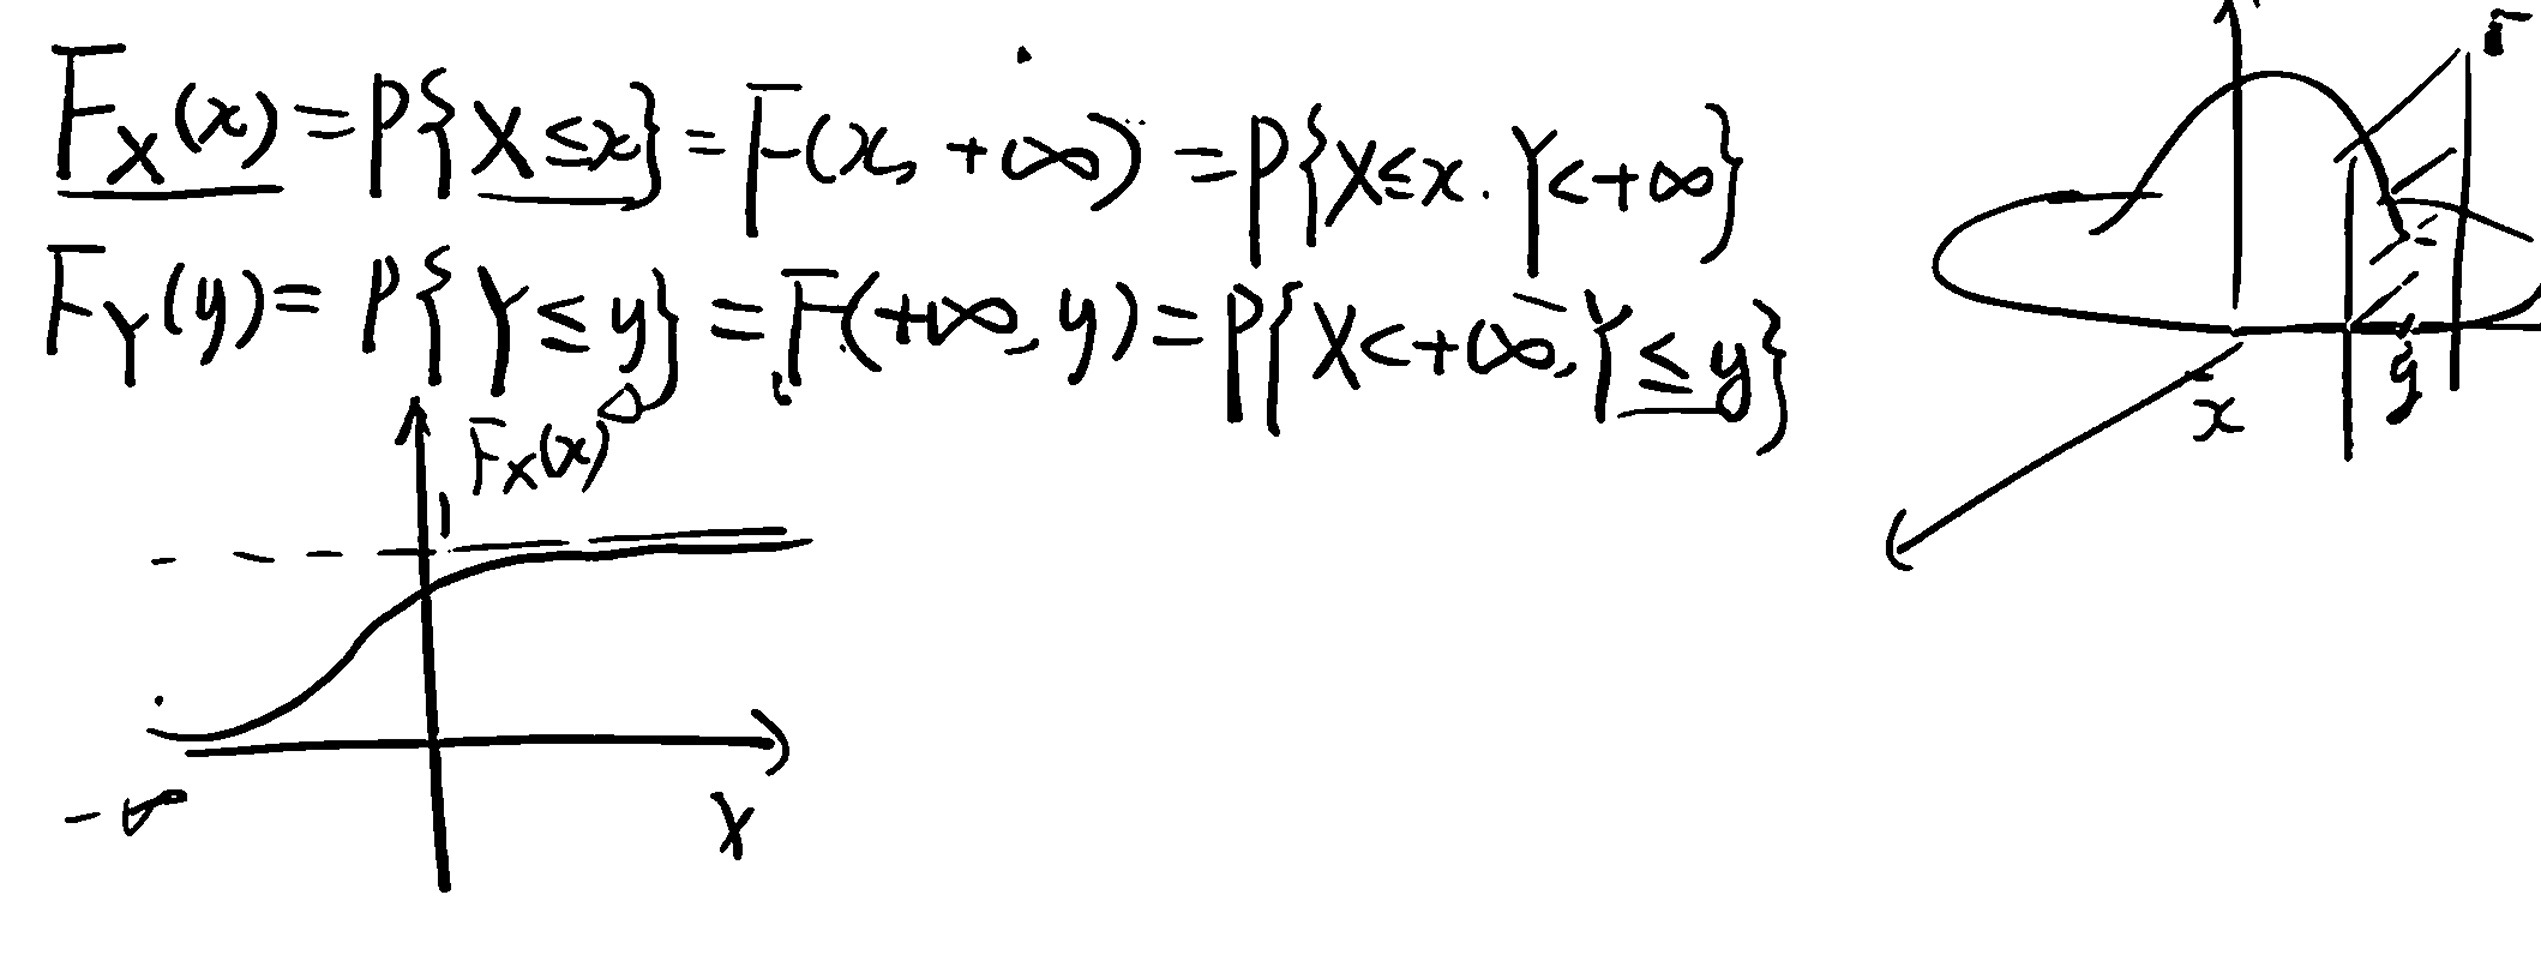 F_X(x) = P{X ≤ x} = F(x, +∞) = P{X ≤ x, Y < +∞}
F_Y(y) = P{Y ≤ y} = F(+∞, y) = P{X < +∞, Y ≤ y}
F_X(x)
1
-∞
X
x
y